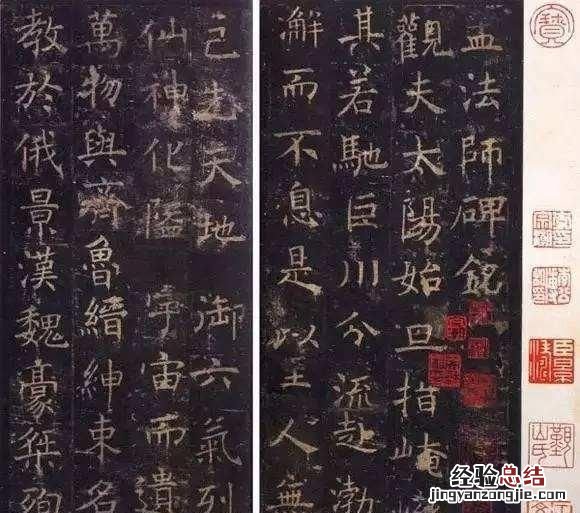 孟法師碑銘
觀夫太陽始旦指崦
其若馳巨川分流赴渤
澥而不息是以至人無
己先天地 御六氣列
仙神化隘 宇宙而遺
萬物與齊魯縉紳束名
教於俄景漢魏豪桀殉
经验总结
jingyanzongjie.com